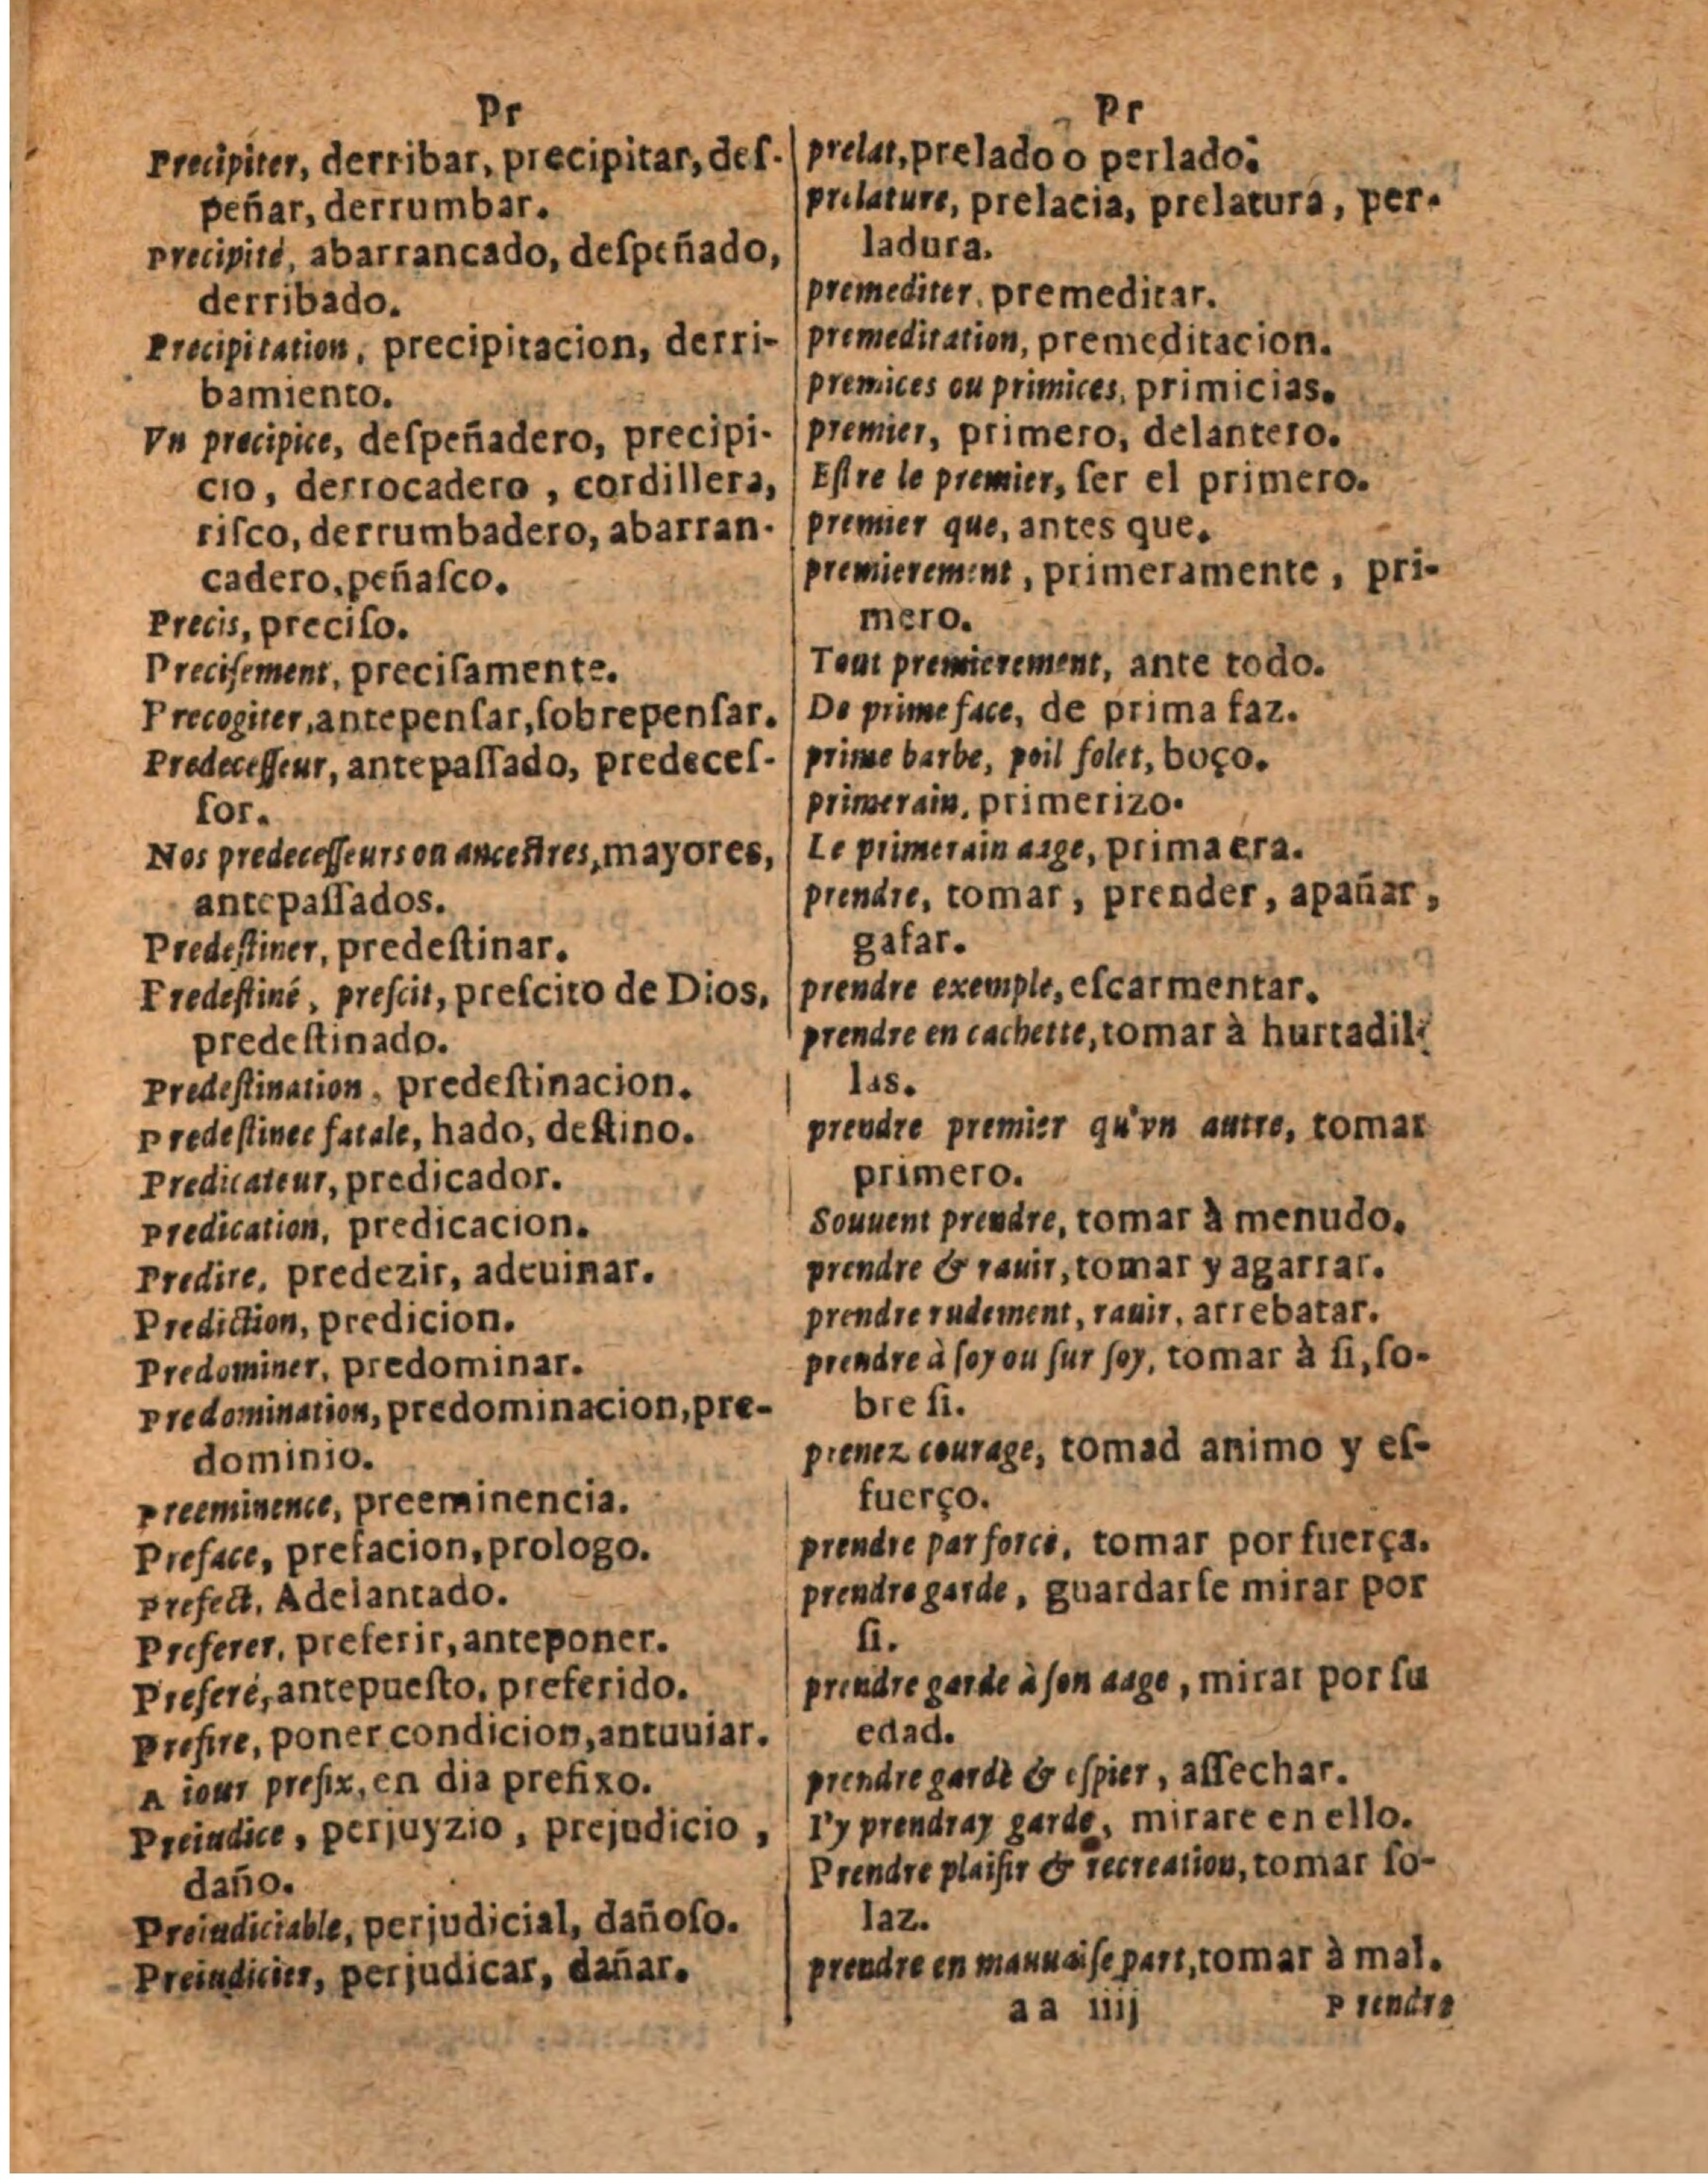 Pr
Precipiter, derribar, precipitar, deſ-
peñar, derrumbar.
Precipité, abarrancado, deſpeñado,
derribado.
Precipitation, precipitacion, derri-
bamiento.
Vn precipice, deſpeñadero, precipi-
cio, derrocadero, cordillera,
riſco, derrumbadero, abarran-
cadero, peñaſco.
Precis, preciſo.
Preciſement, preciſamente.
Precogiter, antepenſar, ſobrepenſar.
Predeceſſeur, antepaſſado, predeceſ-
ſor.
Nos predeceſſeurs on anceſtres, mayores,
antepaſſados.
Predeſtiner, predeſtinar.
Predeſtiné, preſcit, preſcito de Dios,
predeſtinado.
Predeſtination, predeſtinacion.
Predeſtinee fatale, hado, deſtino.
Predicateur, predicador.
Predication, predicacion.
Predire, predezir, adeuinar.
Prediction, predicion.
Predominer, predominar.
Predomination, predominacion, pre-
dominio.
Preeminence, preeminencia.
Preface, prefacion, prologo.
Prefect, Adelantado.
Preferer, preferir, anteponer.
Preferé, antepueſto, preferido.
Prefire, poner condicion, antuuiar.
A iour prefix, en dia prefixo.
Preiudice, perjuyzio, prejudicio,
daño.
Preiudiciable, perjudicial, dañoſo.
Preiudicier, perjudicar, dañar.
Pr
prelat, prelado o perlado.
prelature, prelacia, prelatura, per-
ladura.
premediter, premeditar.
premeditation, premeditacion.
premices ou primices, primicias.
premier, primero, delantero.
Eſtre le premier, ſer el primero.
premier que, antes que.
premierement, primeramente, pri-
mero.
Tout premierement, ante todo.
De prime face, de prima faz.
prime barbe, poil folet, boço.
primerain, primerizo.
Le primerain aage, prima era.
prendre, tomar, prender, apañar,
gafar.
prendre exemple, eſcarmentar.
prendre en cachette, tomar à hurtadil-
las.
prendre premier qu'vn autre, tomar
primero.
Souuent prendre, tomar à menudo.
prendre & rauir, tomar y agarrar.
prendre rudement, rauir, arrebatar.
prendre à ſoy ou ſur ſoy, tomar à ſi, ſo-
bre ſi.
prenez courage, tomad animo y eſ-
fuerço.
prendre par force, tomar por fuerça.
prendre garde, guardarſe mirar por
ſi.
prendre garde à ſon aage, mirar por ſu
edad.
prendre garde & eſpier, aſſechar.
I'y prendray garde, mirare en ello.
Prendre plaiſir & recreation, tomar ſo-
laz.
prendre en mauuaiſe part, tomar à mal.
aa iiij Prendre